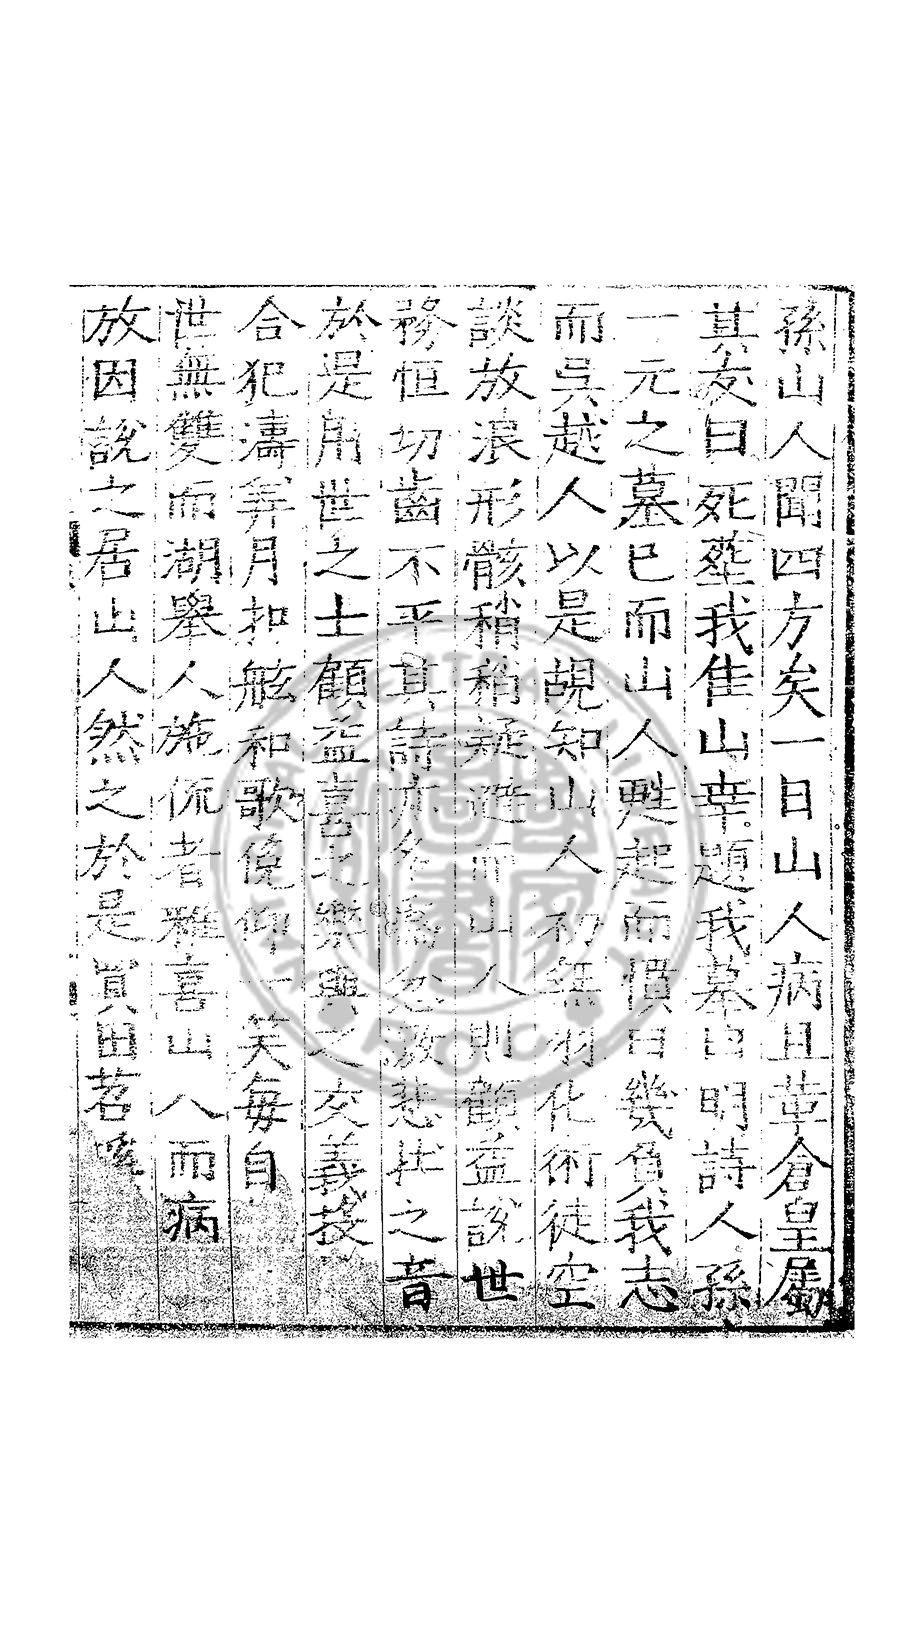 孫山人聞四方矣一日山人病且革倉皇屬
其友曰死塟我隹山幸題我墓曰明詩人孫
一元之墓已而山人甦起而慣曰幾負我志
而吳越人以是覘知山人初無羽化術徒空
談放浪形骸稍稍疑造而山人則顧益說世
務恒切齒不平其詩亦多為忿激悲壯之音
於是用世之士顧益喜與之交義
合犯濤弄月扣舷和歌俛仰一笑每自
世無雙而湖舉人施侃者雅喜山人而病
放因說之居山人然之於是買田苕溪